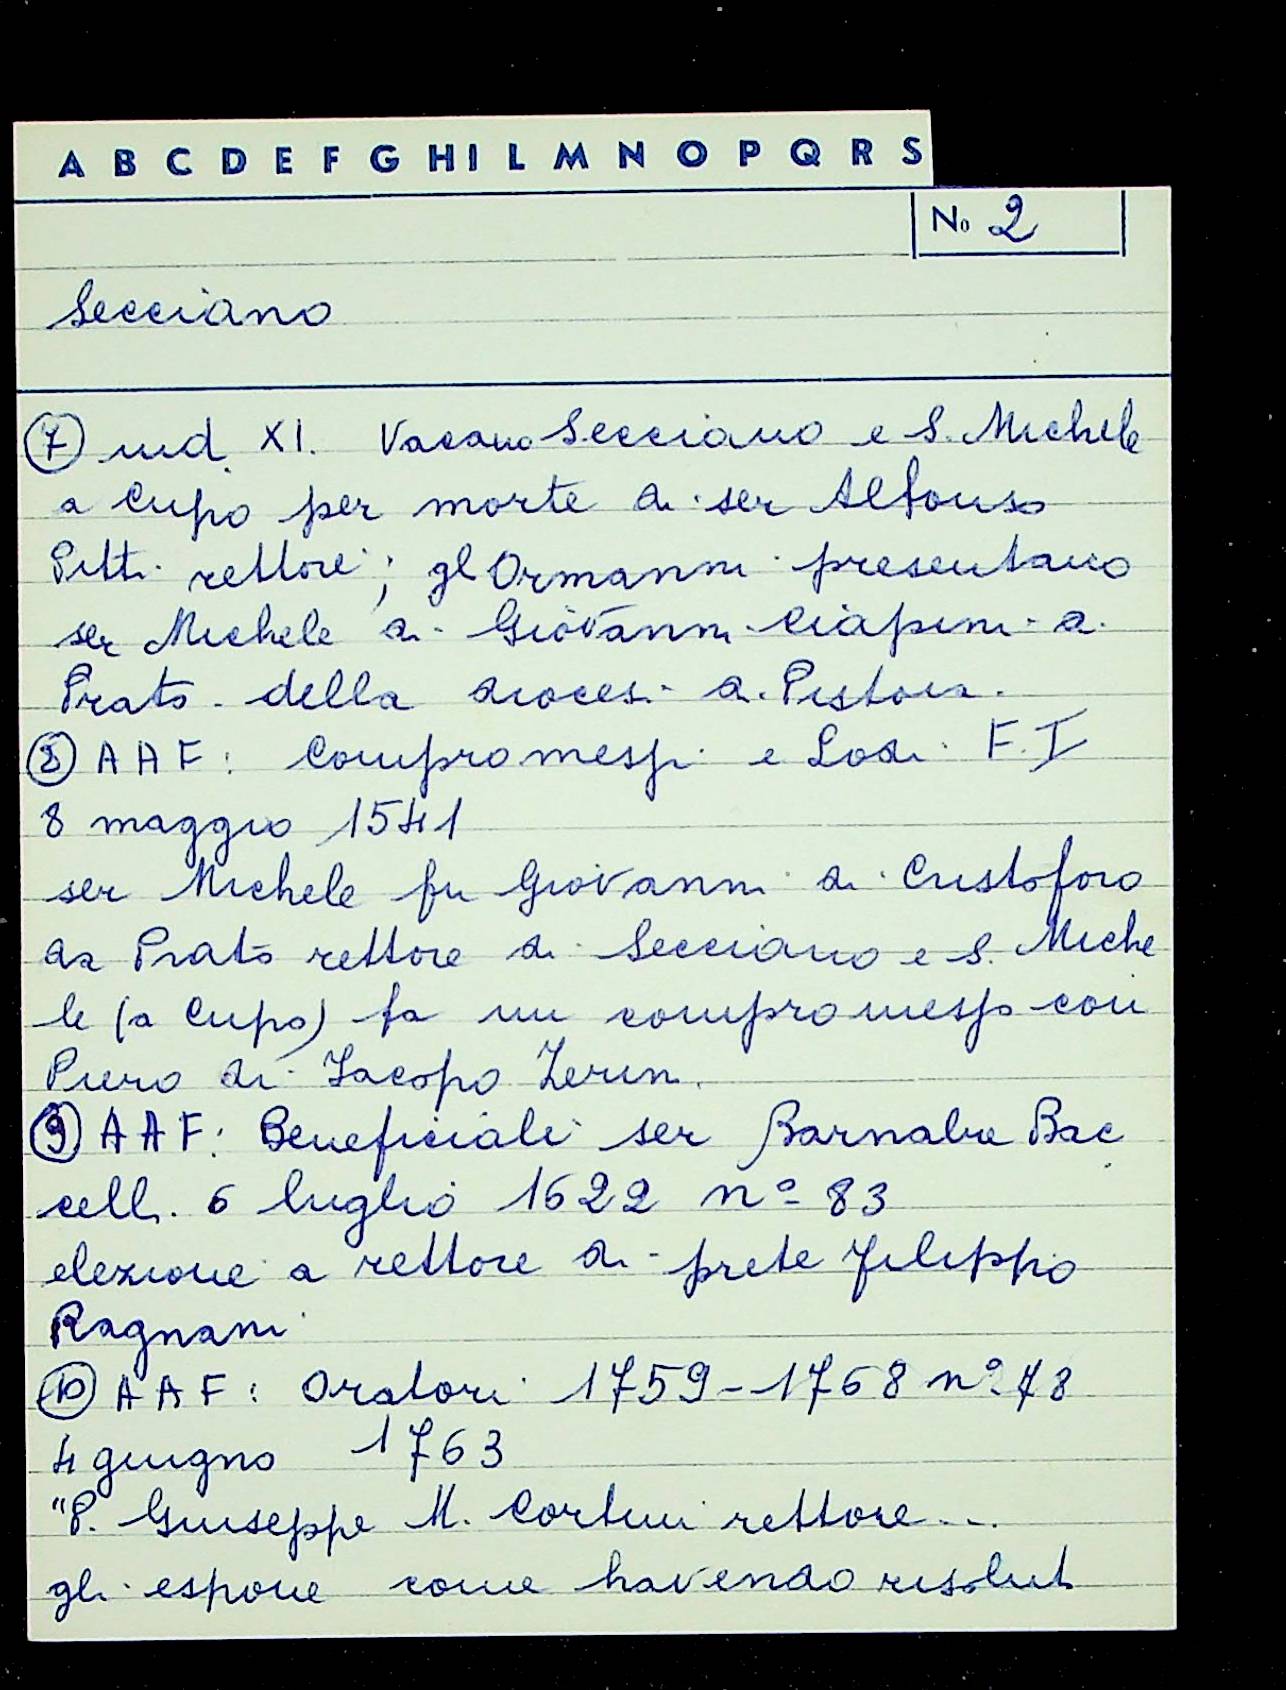 A B C D E F G H I L M N O P Q R S
No 2
Secciano
(7) ind. XI. Vacano Secciano e S. Michele
a Cupo per morte di ser Alfonso
Pitti rettore; gl Ormanni presentano
ser Michele di Giovanni Ciapini di
Prato della diocesi di Pistoia.
(8) AAF: Compromessi e Lodi F. I
8 maggio 1541
ser Michele fu Giovanni di Cristoforo
da Prato rettore di Secciano e S. Miche
le (a Cupo) fa un compromesso con
Piero di Jacopo Zerini.
(9) AAF: Beneficiali ser Barnaba Bac
celli. 6 luglio 1622 nº 83
elezione a rettore di prete Filippo
Ragnani
(10) AAF: Oratori 1759-1768 nº 78
4 giugno 1763
"P. Giuseppe M. Cortini rettore...
gli espone come havendo risolut